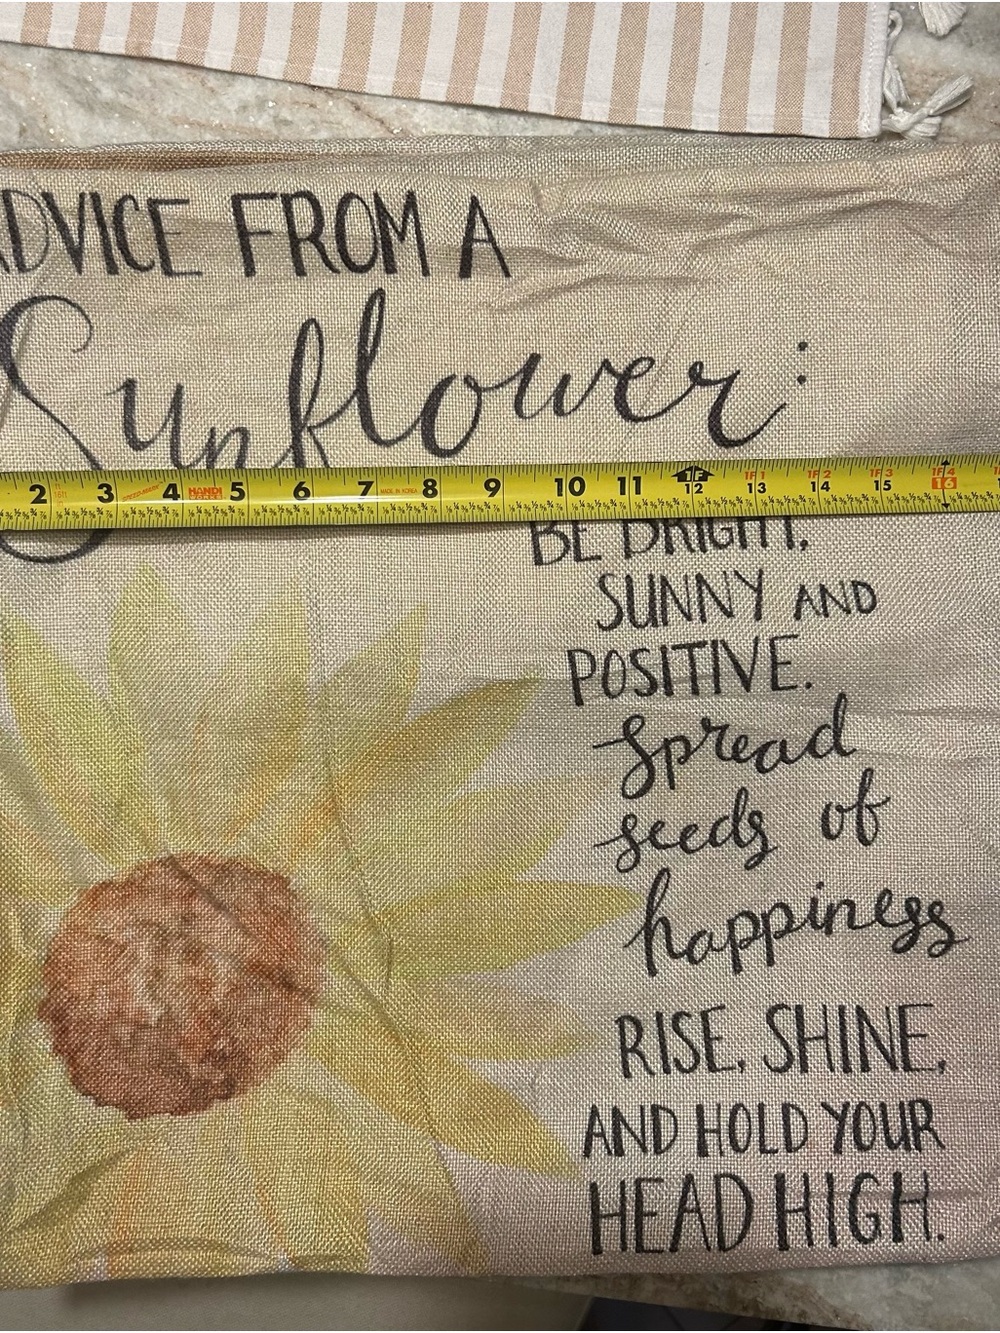 ADVICE FROM A
Sunflower:
2 3 4 HANDI 5 6 7 MADE IN KOREA 8 9 10 11 12 1F 1 13 1F 2 14 1F 3 15 1F 4 16
BE BRIGHT,
SUNNY AND
POSITIVE.
Spread
seeds of
happiness
RISE, SHINE,
AND HOLD YOUR
HEAD HIGH.